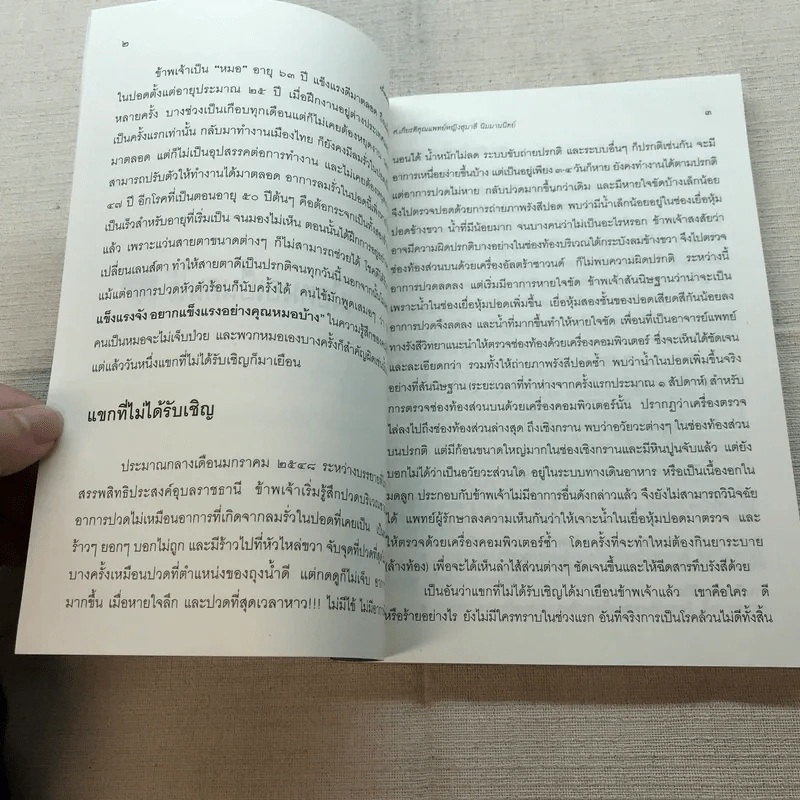 ๒
ข้าพเจ้าเป็น “หมอ” อายุ ๖๓ ปี แข็งแรงดีมาตลอด
ในปอดตั้งแต่อายุประมาณ ๒๕ ปี เมื่อฝึกงานอยู่ต่างประเทศ
หลายครั้ง บางช่วงเป็นเกือบทุกเดือนแต่ก็ไม่เคยต้องหยุดงาน
เป็นครั้งแรกเท่านั้น กลับมาทำงานเมืองไทย ก็ยังคงมีลมรั่วใน
มาตลอด แต่ก็ไม่เป็นอุปสรรคต่อการทำงาน และไม่เคยต้อง
สามารถปรับตัวให้ทำงานได้มาตลอด อาการลมรั่วในปอดนี้
๔๗ ปี อีกโรคที่เป็นตอนอายุ ๕๐ ปีต้นๆ คือต้อกระจกเป็นทั้งสอง
เป็นเร็วสำหรับอายุที่เริ่มเป็น จนมองไม่เห็น ตอนนั้นได้ฝึกการ
แล้ว เพราะแว่นสายตาขนาดต่างๆ ก็ไม่สามารถช่วยได้ โชคดี
เปลี่ยนเลนส์ตา ทำให้สายตาดีเป็นปรกติจนทุกวันนี้ นอกจากนั้น
แม้แต่อาการปวดหัวตัวร้อนก็นับครั้งได้ คนไข้มักพูดเสมอๆ
แข็งแรงจัง อยากแข็งแรงอย่างคุณหมอบ้าง” ในความรู้สึกของ
คนเป็นหมอจะไม่เจ็บป่วย และพวกหมอเองบางครั้งก็สำคัญผิด
แต่แล้ววันหนึ่งแขกที่ไม่ได้รับเชิญก็มาเยือน
แขกที่ไม่ได้รับเชิญ
ประมาณกลางเดือนมกราคม ๒๕๔๘ ระหว่างบรรยาย
สรรพสิทธิประสงค์อุบลราชธานี ข้าพเจ้าเริ่มรู้สึกปวดบริเวณ
อาการปวดไม่เหมือนอาการที่เกิดจากลมรั่วในปอดที่เคยเป็น
ร้าวๆ ยอกๆ บอกไม่ถูก และมีร้าวไปที่หัวไหล่ขวา จับจุดที่ปวด
บางครั้งเหมือนปวดที่ตำแหน่งของถุงน้ำดี แต่กดดูก็ไม่เจ็บ
มากขึ้น เมื่อหายใจลึก และปวดที่สุดเวลาหาว!!! ไม่มีไข้
ศ.เกียรติคุณแพทย์หญิงสุมาลี นิมมานนิตย์ ๓
นอนได้ น้ำหนักไม่ลด ระบบขับถ่ายปรกติ และระบบอื่นๆ ก็ปรกติเช่นกัน จะมี
อาการเหนื่อยง่ายขึ้นบ้าง แต่เป็นอยู่เพียง ๓-๔ วันก็หาย ยังคงทำงานได้ตามปรกติ
แต่อาการปวดไม่หาย กลับปวดมากขึ้นกว่าเดิม และมีหายใจขัดบ้างเล็กน้อย
จึงไปตรวจปอดด้วยการถ่ายภาพรังสีปอด พบว่ามีน้ำเล็กน้อยอยู่ในช่องเยื่อหุ้ม
ปอดข้างขวา น้ำที่มีน้อยมาก จนบางคนว่าไม่เป็นอะไรหรอก ข้าพเจ้าสงสัยว่า
อาจมีความผิดปรกติบางอย่างในช่องท้องบริเวณใต้กระบังลมข้างขวา จึงไปตรวจ
ช่องท้องส่วนบนด้วยเครื่องอัลตร้าซาวนด์ ก็ไม่พบความผิดปรกติ ระหว่างนี้
อาการปวดลดลง แต่เริ่มมีอาการหายใจขัด ข้าพเจ้าสันนิษฐานว่าน่าจะเป็น
เพราะน้ำในช่องเยื่อหุ้มปอดเพิ่มขึ้น เยื่อหุ้มสองชั้นของปอดเสียดสีกันน้อยลง
อาการปวดจึงลดลง และน้ำที่มากขึ้นทำให้หายใจขัด เพื่อนที่เป็นอาจารย์แพทย์
ทางรังสีวิทยาแนะนำให้ตรวจช่องท้องด้วยเครื่องคอมพิวเตอร์ ซึ่งจะเห็นได้ชัดเจน
และละเอียดกว่า รวมทั้งให้ถ่ายภาพรังสีปอดซ้ำ พบว่าน้ำในปอดเพิ่มขึ้นจริง
อย่างที่สันนิษฐาน (ระยะเวลาที่ทำห่างจากครั้งแรกประมาณ ๑ สัปดาห์) สำหรับ
การตรวจช่องท้องส่วนบนด้วยเครื่องคอมพิวเตอร์นั้น ปรากฏว่าเครื่องตรวจ
ไล่ลงไปถึงช่องท้องส่วนล่างสุด ถึงเชิงกราน พบว่าอวัยวะต่างๆ ในช่องท้องส่วน
บนปรกติ แต่มีก้อนขนาดใหญ่มากในช่องเชิงกรานและมีหินปูนจับแล้ว แต่ยัง
บอกไม่ได้ว่าเป็นอวัยวะส่วนใด อยู่ในระบบทางเดินอาหาร หรือเป็นเนื้องอกใน
มดลูก ประกอบกับข้าพเจ้าไม่มีอาการอื่นดังกล่าวแล้ว จึงยังไม่สามารถวินิจฉัย
ได้ แพทย์ผู้รักษาลงความเห็นกันว่าให้เจาะน้ำในเยื่อหุ้มปอดมาตรวจ และ
ให้ตรวจด้วยเครื่องคอมพิวเตอร์ซ้ำ โดยครั้งที่จะทำใหม่ต้องกินยาระบาย
(ล้างท้อง) เพื่อจะได้เห็นลำไส้ส่วนต่างๆ ชัดเจนขึ้นและให้ฉีดสารทึบรังสีด้วย
เป็นอันว่าแขกที่ไม่ได้รับเชิญได้มาเยือนข้าพเจ้าแล้ว เขาคือใคร ดี
หรือร้ายอย่างไร ยังไม่มีใครทราบในช่วงแรก อันที่จริงการเป็นโรคล้วนไม่ดีทั้งสิ้น